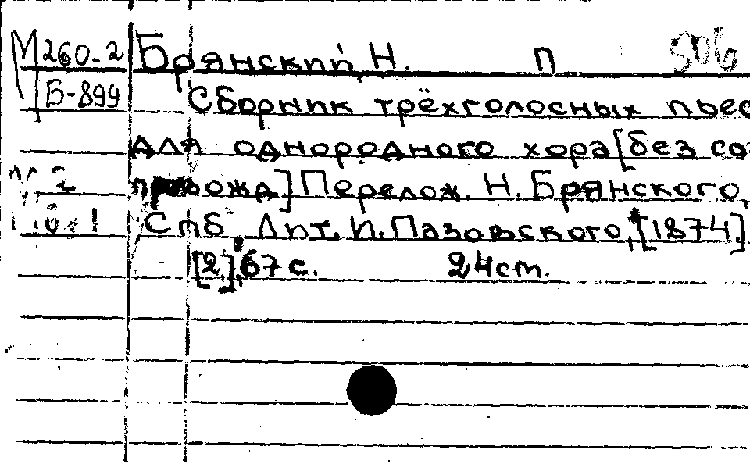 М260-2 Брянский, Н. П 506
Б-899 Сборник трёхголосных пьес
для однородного хора [без со-
провожд] Перелож. Н. Брянского,
Спб Лит. И. Пазовского, [1874].
[2], 67 с. 24 ст.